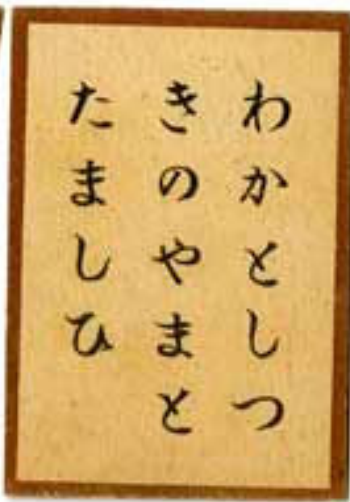 わかとしつ
きのやまと
たましひ